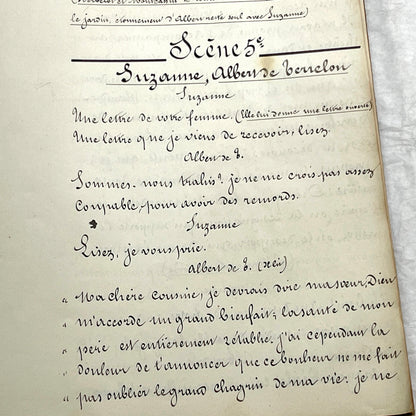 le jardin, étonnement d'Albert resté seul avec Suzanne)
Scène 5e
Suzanne, Albert de Terrelon
Suzanne
Une lettre de votre femme (Elle lui donne une lettre ouverte)
Une lettre que je viens de recevoir, lisez.
Albert de T.
Sommes-nous trahis? je ne me crois pas assez
coupable, pour avoir des remords.
Suzanne
Lisez, je vous prie.
Albert de T. (Lit)
" Ma chère cousine, je devrais dire ma sœur, Dieu
" m'accorde un grand bienfait; la santé de mon
" père est entièrement rétablie, j'ai cependant la
" douleur de t'annoncer que ce bonheur ne me fait
" pas oublier le grand chagrin de ma vie; je ne